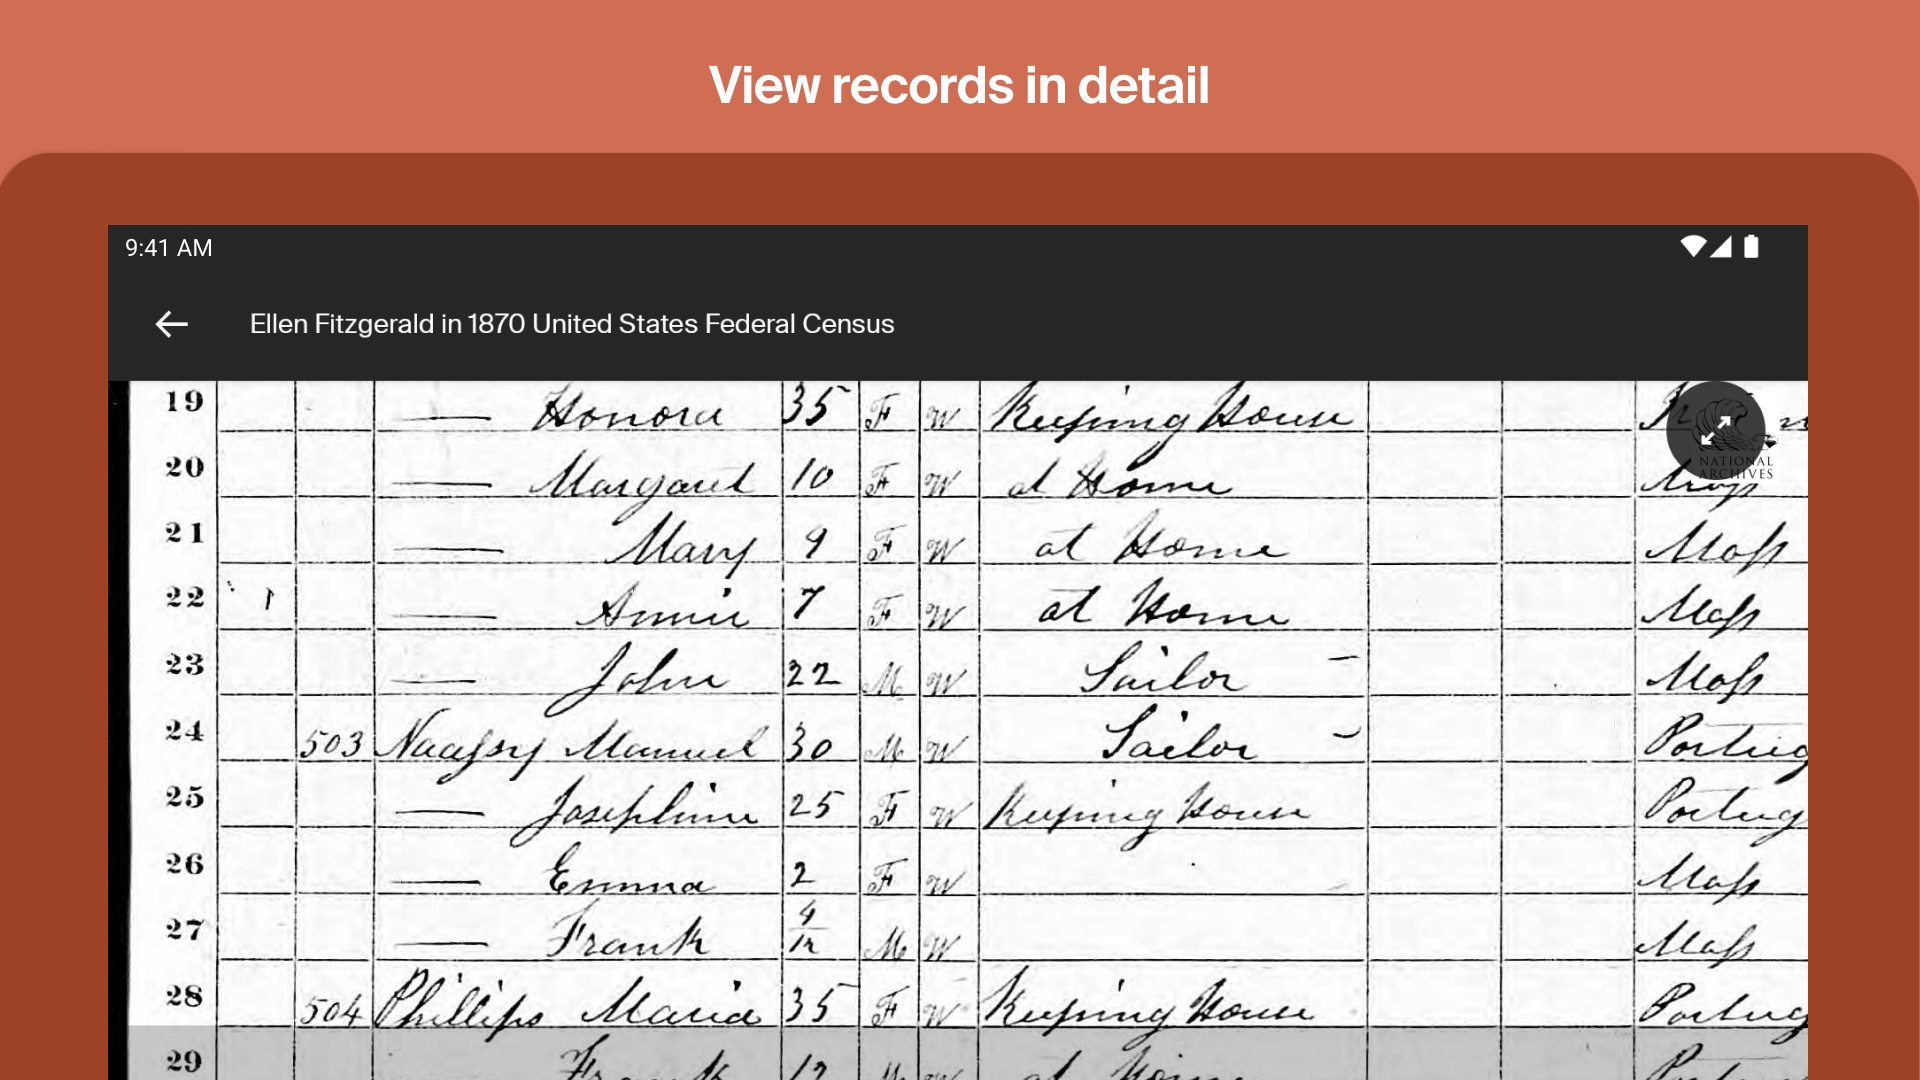 View records in detail
9:41 AM
Ellen Fitzgerald in 1870 United States Federal Census
19 — Honora 35 F W Keeping House
NATIONAL
ARCHIVES
20 — Margaret 10 F W at Home
21 — Mary 9 F W at Home Mass
22 1 — Annie 7 F W at Home Mass
23 — John 22 M W Sailor — Mass
24 503 Manuel 30 M W Sailor Portug
25 — Josephine 25 F W Keeping House Portug
26 — Emma 2 F W Mass
27 — Frank 4/12 M W Mass
28 504 Phillips Maria 35 F W Keeping House Portug
29 Frank 12 M W at Home